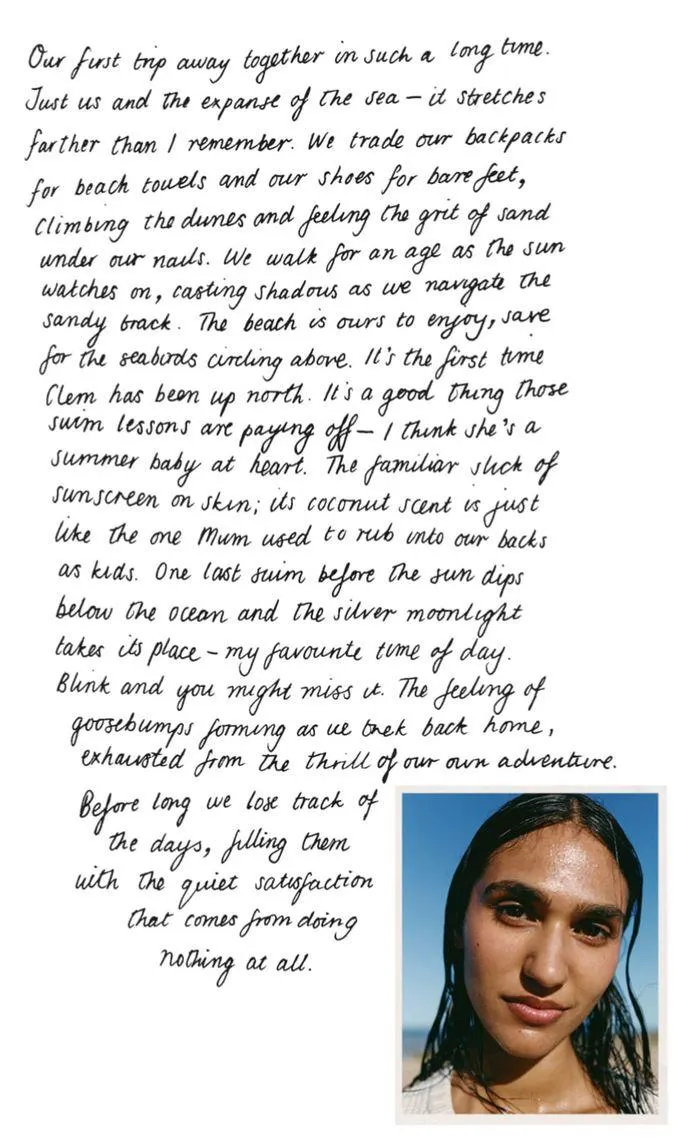 Our first trip away together in such a long time.
Just us and the expanse of the sea – it stretches
farther than I remember. We trade our backpacks
for beach towels and our shoes for bare feet,
climbing the dunes and feeling the grit of sand
under our nails. We walk for an age as the sun
watches on, casting shadows as we navigate the
sandy track. The beach is ours to enjoy, save
for the seabirds circling above. It's the first time
Clem has been up north. It's a good thing those
swim lessons are paying off – I think she's a
summer baby at heart. The familiar slick of
sunscreen on skin; its coconut scent is just
like the one Mum used to rub into our backs
as kids. One last swim before the sun dips
below the ocean and the silver moonlight
takes its place – my favourite time of day.
Blink and you might miss it. The feeling of
goosebumps forming as we trek back home,
exhausted from the thrill of our own adventure.
Before long we lose track of
the days, filling them
with the quiet satisfaction
that comes from doing
nothing at all.